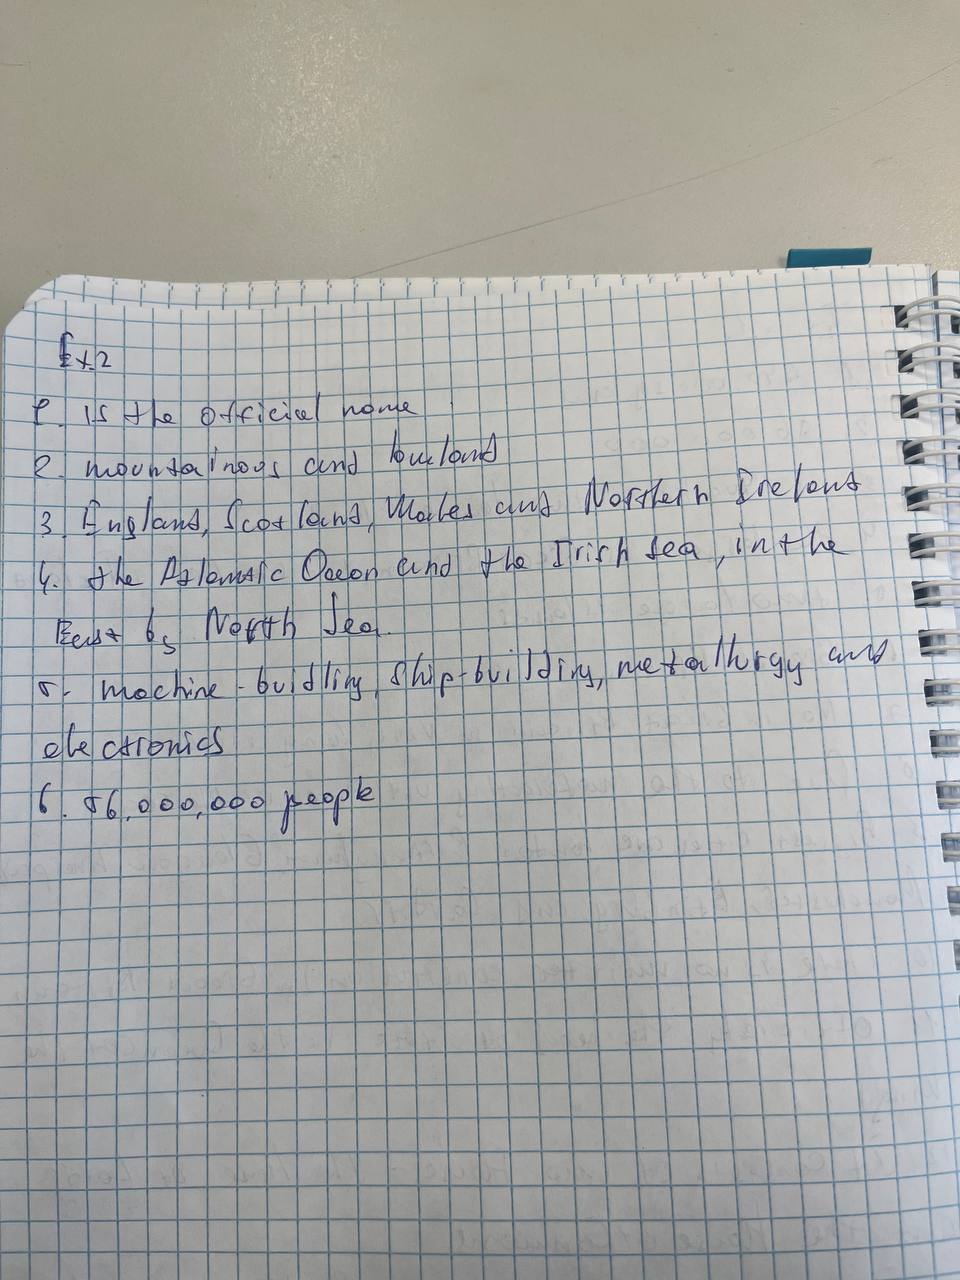 Ex.2
1. is the official name
2. mountainous and lowland
3. England, Scotland, Wales and Northern Ireland
4. the Atlantic Ocean and the Irish Sea, in the
East by North Sea.
5. machine-buidling, ship-building, metallurgy and
electronics
6. 56,000,000 people